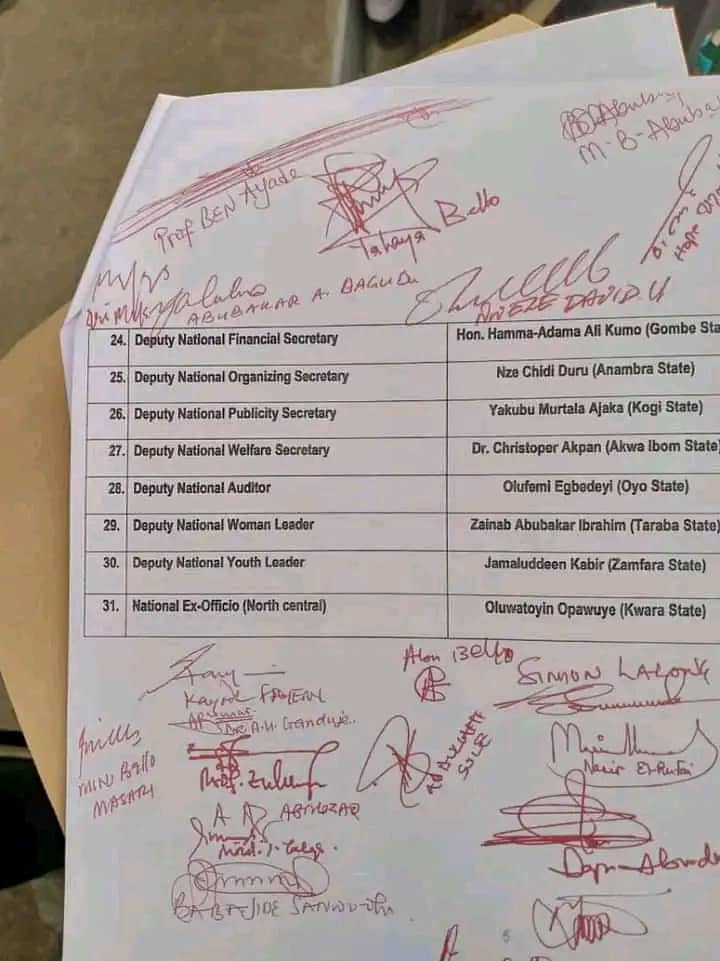 M-B-Abuba
Prof BEN Ayade
Yahaya Bello
Hope
ABUBAKAR A. BAGUDU
NWEZE DAVID U
24. Deputy National Financial Secretary Hon. Hamma-Adama Ali Kumo (Gombe Sta
25. Deputy National Organizing Secretary Nze Chidi Duru (Anambra State)
26. Deputy National Publicity Secretary Yakubu Murtala Ajaka (Kogi State)
27. Deputy National Welfare Secretary Dr. Christoper Akpan (Akwa Ibom State)
28. Deputy National Auditor Olufemi Egbedeyi (Oyo State)
29. Deputy National Woman Leader Zainab Abubakar Ibrahim (Taraba State)
30. Deputy National Youth Leader Jamaluddeen Kabir (Zamfara State)
31. National Ex-Officio (North central) Oluwatoyin Opawuye (Kwara State)
Bello
SIMON LALONG
Kayode
DR. A.U. Ganduje.
ABDULLAHI
SULE
Nasir El-Rufai
Bello
MASARI
Prof. Zulum
BABAJIDE SANWO-OLU